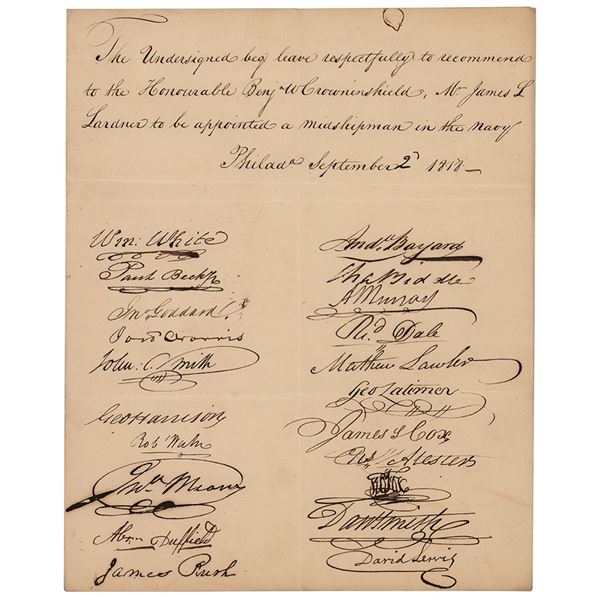 The Undersigned beg leave respectfully to recommend
to the Honourable Benj W Crowninshield, Mr James L
Lardner to be appointed a midshipman in the navy
Philada September 2d 1818
Wm: White
Paul Beck Jr
Jno Goddard
Morris
John C. Smith
Geo Harrison
Robt Waln
Jno
Abm Duffield
James Rush
Andw Bayard
Biddle
A Murray
Rd Dale
Mathew Lawler
Geo Latimer
James S Cox
Danl Smith
David Lewis